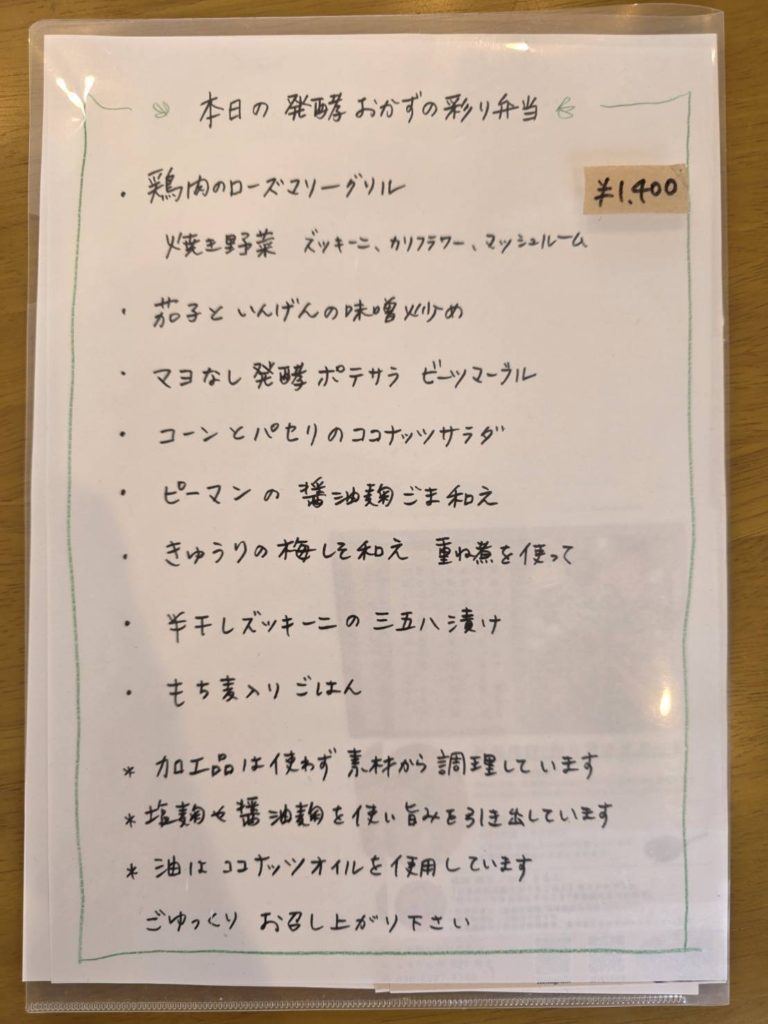 本日の 発酵おかずの彩り弁当
¥1,400
・鶏肉のローズマリーグリル
焼き野菜 ズッキーニ、カリフラワー、マッシュルーム
・茄子といんげんの味噌炒め
・マヨなし発酵ポテサラ ビーツマーブル
・コーンとパセリのココナッツサラダ
・ピーマンの 醤油麹ごま和え
・きゅうりの梅しそ和え 重ね煮を使って
・半干しズッキーニの三五八漬け
・もち麦入りごはん
* 加工品は使わず素材から調理しています
* 塩麹や醤油麹を使い旨みを引き出しています
* 油はココナッツオイルを使用しています
ごゆっくり お召し上がり下さい